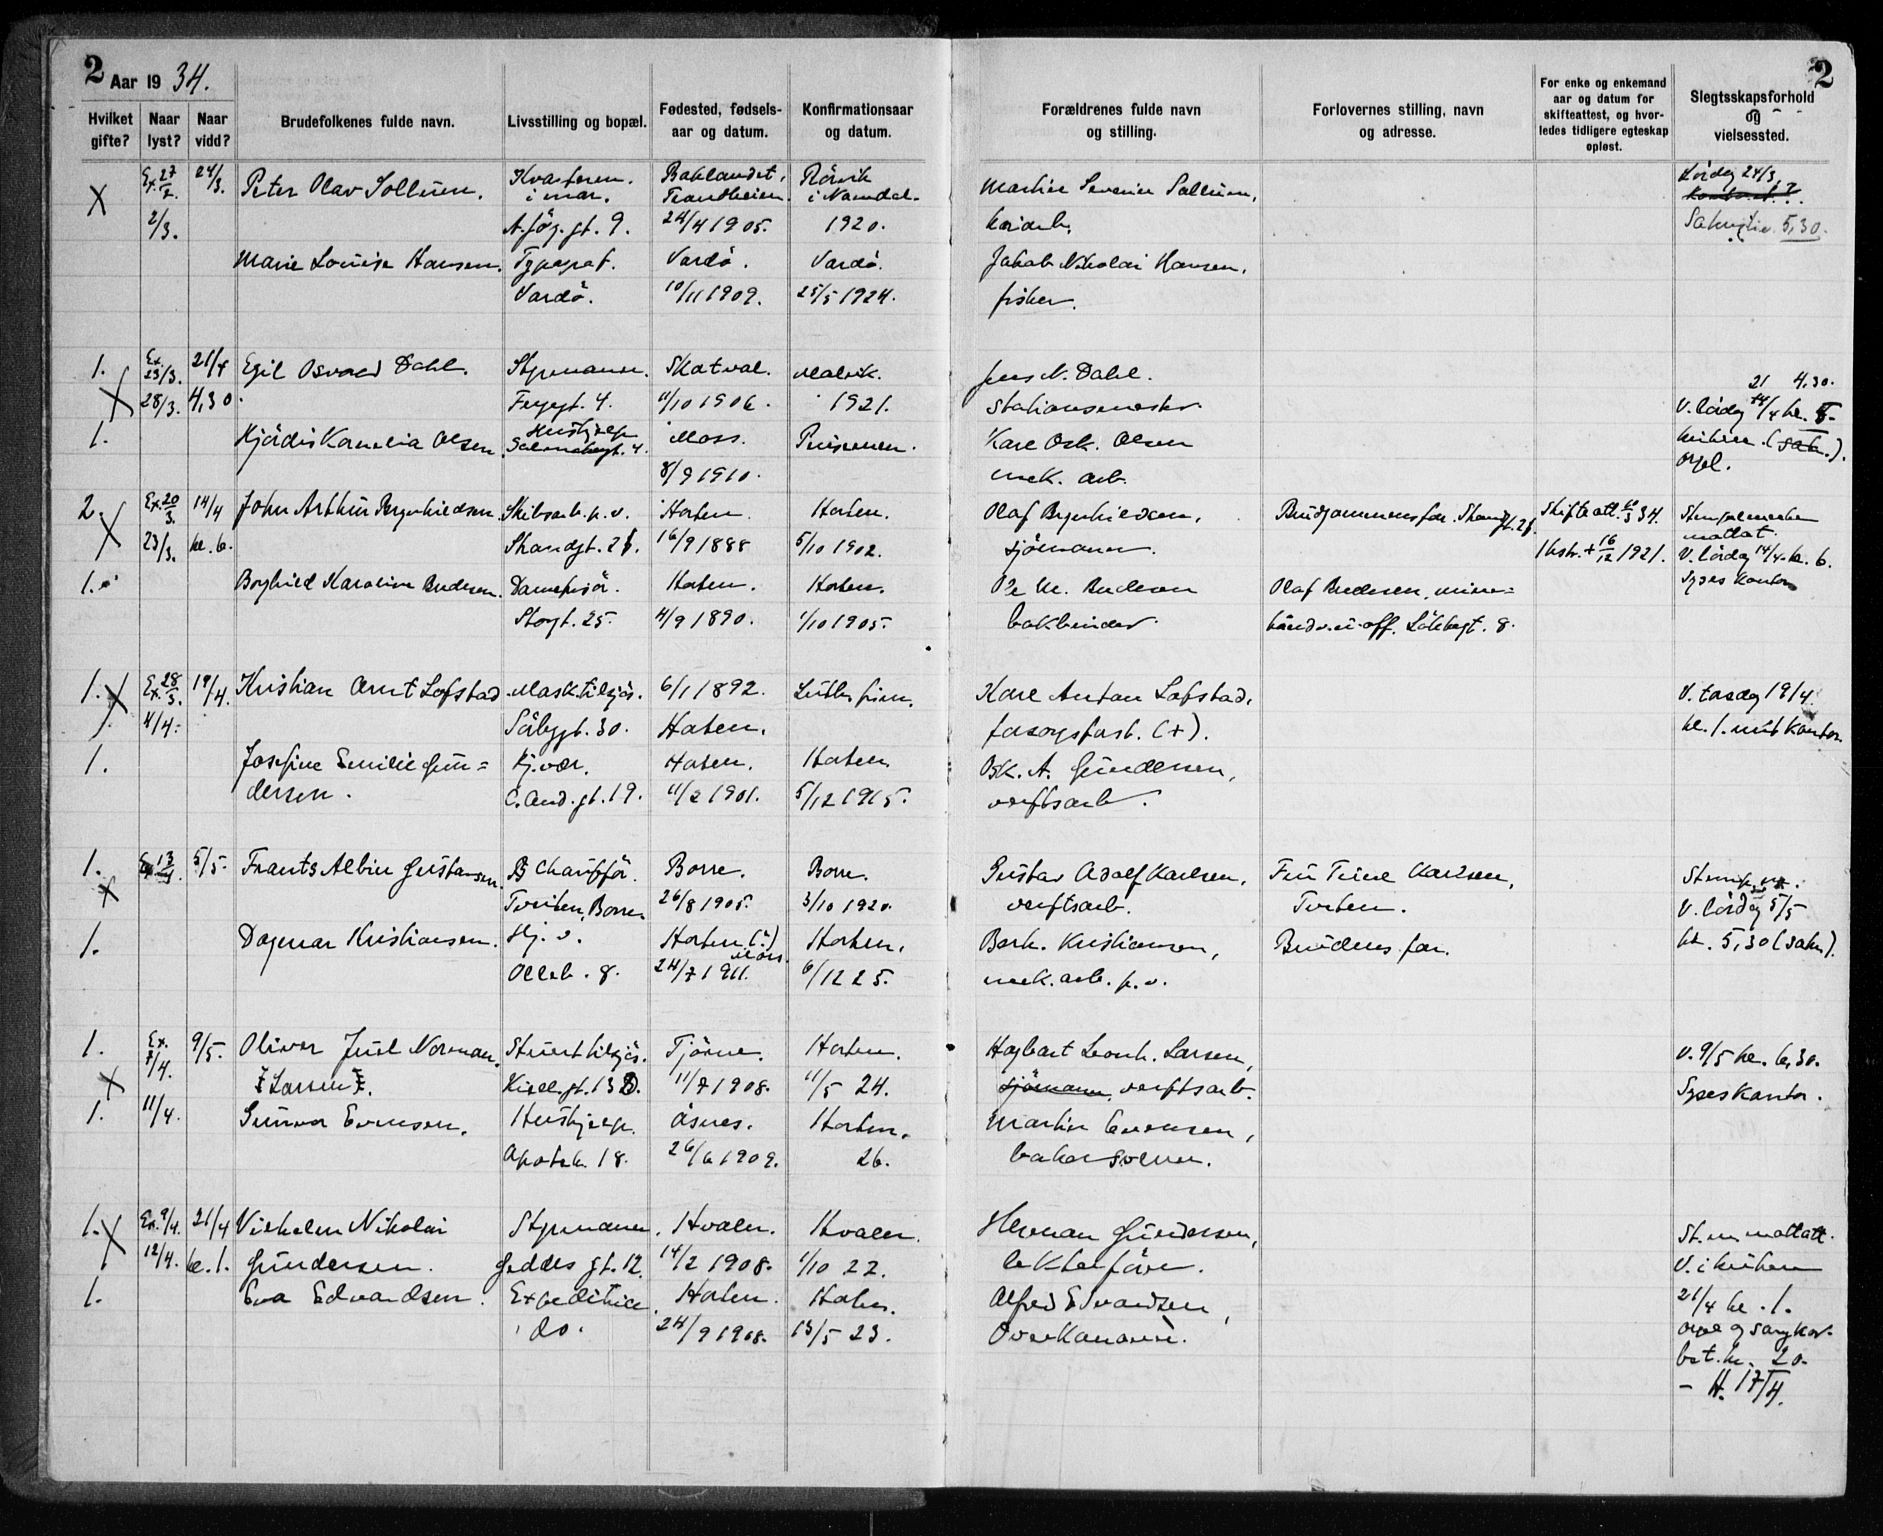 2 Aar 1934.
2
Hvilket gifte?
Naar lyst?
Naar vidd?
Brudefolkenes fulde navn.
Livsstilling og bopæl.
Fødested, fødsels-
aar og datum.
Konfirmationsaar
og datum.
Forældrenes fulde navn
og stilling.
Forlovernes stilling, navn
og adresse.
For enke og enkemand
aar og datum for
skifteattest, og hvor-
ledes tidligere egteskap
opløst.
Slegtsskapsforhold
og
vielsessted.
X Ex. 27/2. 24/3. Peter Olav Sollum. Kvarterm. Baklandet, Rörvik Martin Severin Sollum, Lördag 24/3.
i mar. Trondheim. i Namdal. Kontoret?
2/3. A. jög. gt. 9. 24/4 1905. 1920. 5,30.
Marie Louise Hansen. Typograf. Vardö. Vardö. Jakob Nikolai Hansen,
Vardö. 10/11 1909. 25/5 1924. fisker.
1. Ex. 23/3. 21/4 Egil Osvald Dahl. Styrmann. Skatval. Malvik. Jens N. Dahl. 21 4.30.
X 28/3. 4,30. Fergegt. 4. 11/10 1906. 1921. Stationsmester. V. lördag 14/4 kl. 5.
1. Hjördis Kornelia Olsen. Hushjelp Moss. Karl Osk. Olsen kirken. (sak.).
8/9 1910. mek. arb. orgel.
2. X Ex. 20/3. 14/4 John Arthur Brynhildsen. Skibsarb. p. v. Horten. Horten. Olaf Brynhildsen, Brudgommens far. Strandgt. 21. Skifteatt. 10/3 34. Stempelmerker
mottat.
23/3. kl. 6. Strandgt. 21. 16/9 1888 5/10 1902. sjömann. 1 hstr. + 16/12 1921. V. lördag 14/4. kl. 6.
1. Borghild Karoline Andersen. Damefrisör. Horten. Horten. Andersen Olaf Andersen, mine= Syses kontor
Storgt. 25. 4/9 1890. 1/10 1905. bokbinder. u. off. Løkkegt. 8.
1. X Ex. 28/3. 19/4. Kristian Arnt Lofstad Mask. tilsjös. 6/1 1892. Luth. frim. Karl Anton Lofstad, V. torsdag 19/4.
4/4. gt. 30. Horten. forsorgsforst. (+). kl. 1. mitt kontor.
1. Josefine Emilie Gun= Hj. vær. Horten. Horten. Osk. A. Gundersen,
dersen. C. And. gt. 19. 11/2 1901. 5/12 1915. verftsarb.
1. 5/5. Frants Albin Gustavsen. Chauffør. Borre. Borre. Gustav Adolf Karlsen, Karlsen,
X Torsten, Borre 26/8 1905. 3/10 1920. verftsarb. Torsten. V. lördag 5/5
1. Dagmar Kristiansen. Hj. v. Horten (?) Moss. Horten. Barth. Kristiansen, Brudens far. kl. 5,30 (sakr.).
Olleb. 8. 24/7 1911. 6/12 25. mek. arb. p. v.
1. Ex. 7/4. 9/5. Oliver Juel Norman. Stuert tilsjös. Tjöme. Horten. Hagbart Leonh. Larsen, V. 9/5 kl. 6,30.
X (Larsen). gt. 13 11/7 1908. 11/5 24. sjömann, verftsarb. Syses kontor.
1. 11/4. Gunvor Evensen. Hushjelp. Åsnes. Horten. Martin Evensen,
Apotekg. 18. 26/6 1909. 26. bakersvenn.
1. X Ex. 9/4. 21/4 Vilhelm Nikolai Styrmann. Hvaler. Hvaler. Herman Gundersen, St. m. mottatt.
12/4. kl. 1. Gundersen. Geddes gt. 12. 14/2 1908. 1/10 22. lekterförer. V. i kirken
1. Eva Edvardsen. Expeditrice Horten. Horten. Alfred Edvardsen, 21/4 kl. 1.
do. 24/9 1908. 13/5 23. Overkanoner. orgel og sangkor.
bet. kr. 20.
– H. 17/4.